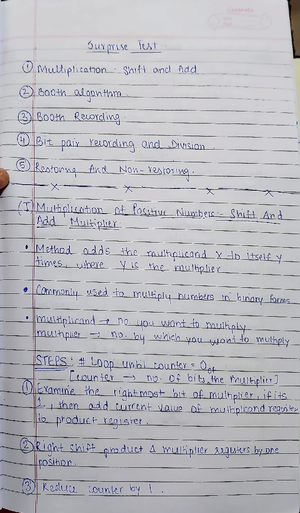 Surprise Test
① Multiplication - Shift and Add
② Booth algorithm.
③ Booth Recording
④ Bit pair recording and Division
⑤ Restoring And Non-restoring.
(I) Multiplication of Positive Numbers:- Shift And
Add Multiplier
• Method adds the multiplicand X to itself Y
times, where Y is the multiplier
• Commonly used to multiply numbers in binary forms
• multiplicand → no. you want to multiply
multiplier → no. by which you want to multiply
STEPS: # Loop until counter = 0
[counter → no. of bits, the Multiplier]
① Examine the rightmost bit of multiplier, if its
1, then add current value of multiplicand register
to product register.
② Right shift product & multiplier registers by one
position.
③ Reduce counter by 1.